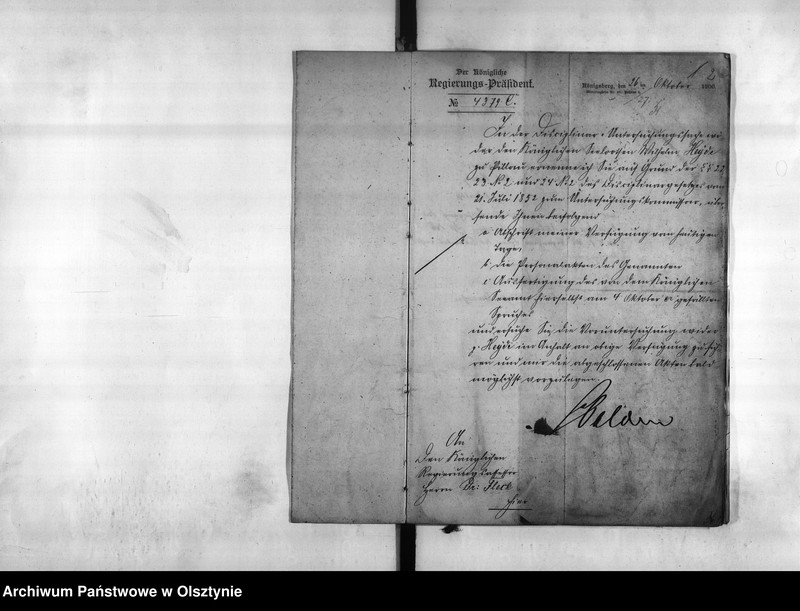 Der Königliche
Regierungs-Präsident.
№ 4879 C.
Königsberg, den 26 ten Oktober
In der Disciplinar-Untersuchungssache wi-
der den Königlichen Seelootsen Wilhelm Heyde
zu Pillau ernenne ich Sie auf Grund der §§ 22
23 № 2 und 24 № 2 des Disciplinargesetzes vom
21. Juli 1852 zum Untersuchungskommissar, über-
sende Ihnen beifolgend
a Abschrift meiner Verfügung vom heutigen
Tage,
b die Personalakten des Genannten
c Ausfertigung des von dem Königlichen
Seeamt hierselbst am 4 Oktober cr gefällten
Spruches
und ersuche Sie die Voruntersuchung wider
p. Heyde im Anhalt an obige Verfügung zu füh-
ren und mir die abgeschlossenen Akten bald
möglichst vorzulegen.
An
den Königlichen
Regierungsassessor
Herrn Dr: Fleck
hier
Archiwum Państwowe w Olsztynie